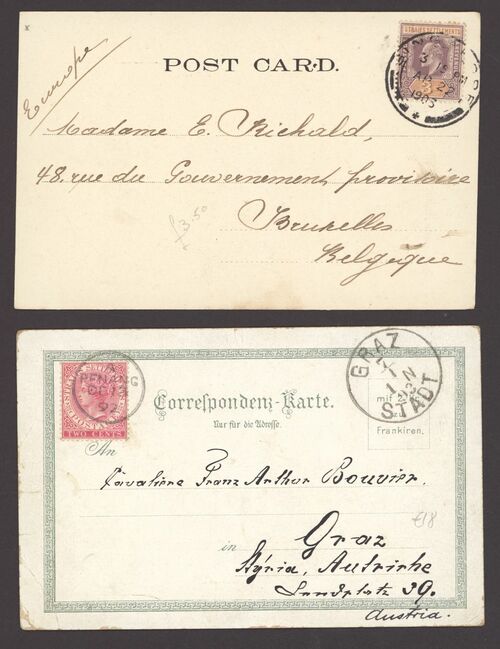 Europe
POST CARD.
STRAITS SETTLEMENTS
1903
Madame E. Richald,
48. rue du Gouvernement provisoire
£3.50
Bruxelles
Belgique
PENANG
TWO CENTS
GRAZ
STADT
Correspondenz-Karte.
Nur für die Adresse.
mit
zu
Frankiren.
An
Cavaliere Franz Arthur Bouvier.
£18
in Graz
Styria, Autriche
Landplatz 39.
Austria.